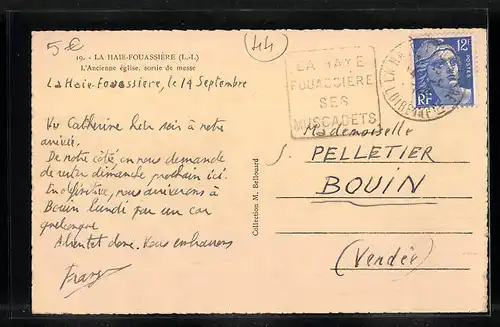 5€
44
19. - LA HAIE-FOUASSIÈRE (L.-I.)
L'Ancienne église, sortie de messe
La Haie-Fouassière, le 14 Septembre
Vu Catherine hier soir à notre
arrivée.
De notre côté on nous demande
de rester dimanche prochain ici.
En définitive, nous arriverons à
Bouin lundi par un car
quelconque.
A bientôt donc. Vous embrassons
Collection M. Bellouard
LA HAYE
FOUASSIÈRE
SES
MUSCADETS
12F
POSTES
RF
Mademoiselle
S. PELLETIER
BOUIN
(Vendée)